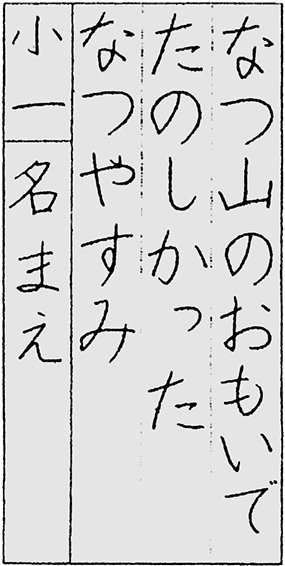 なつ山のおもいで
たのしかった
なつやすみ
小一 名まえ